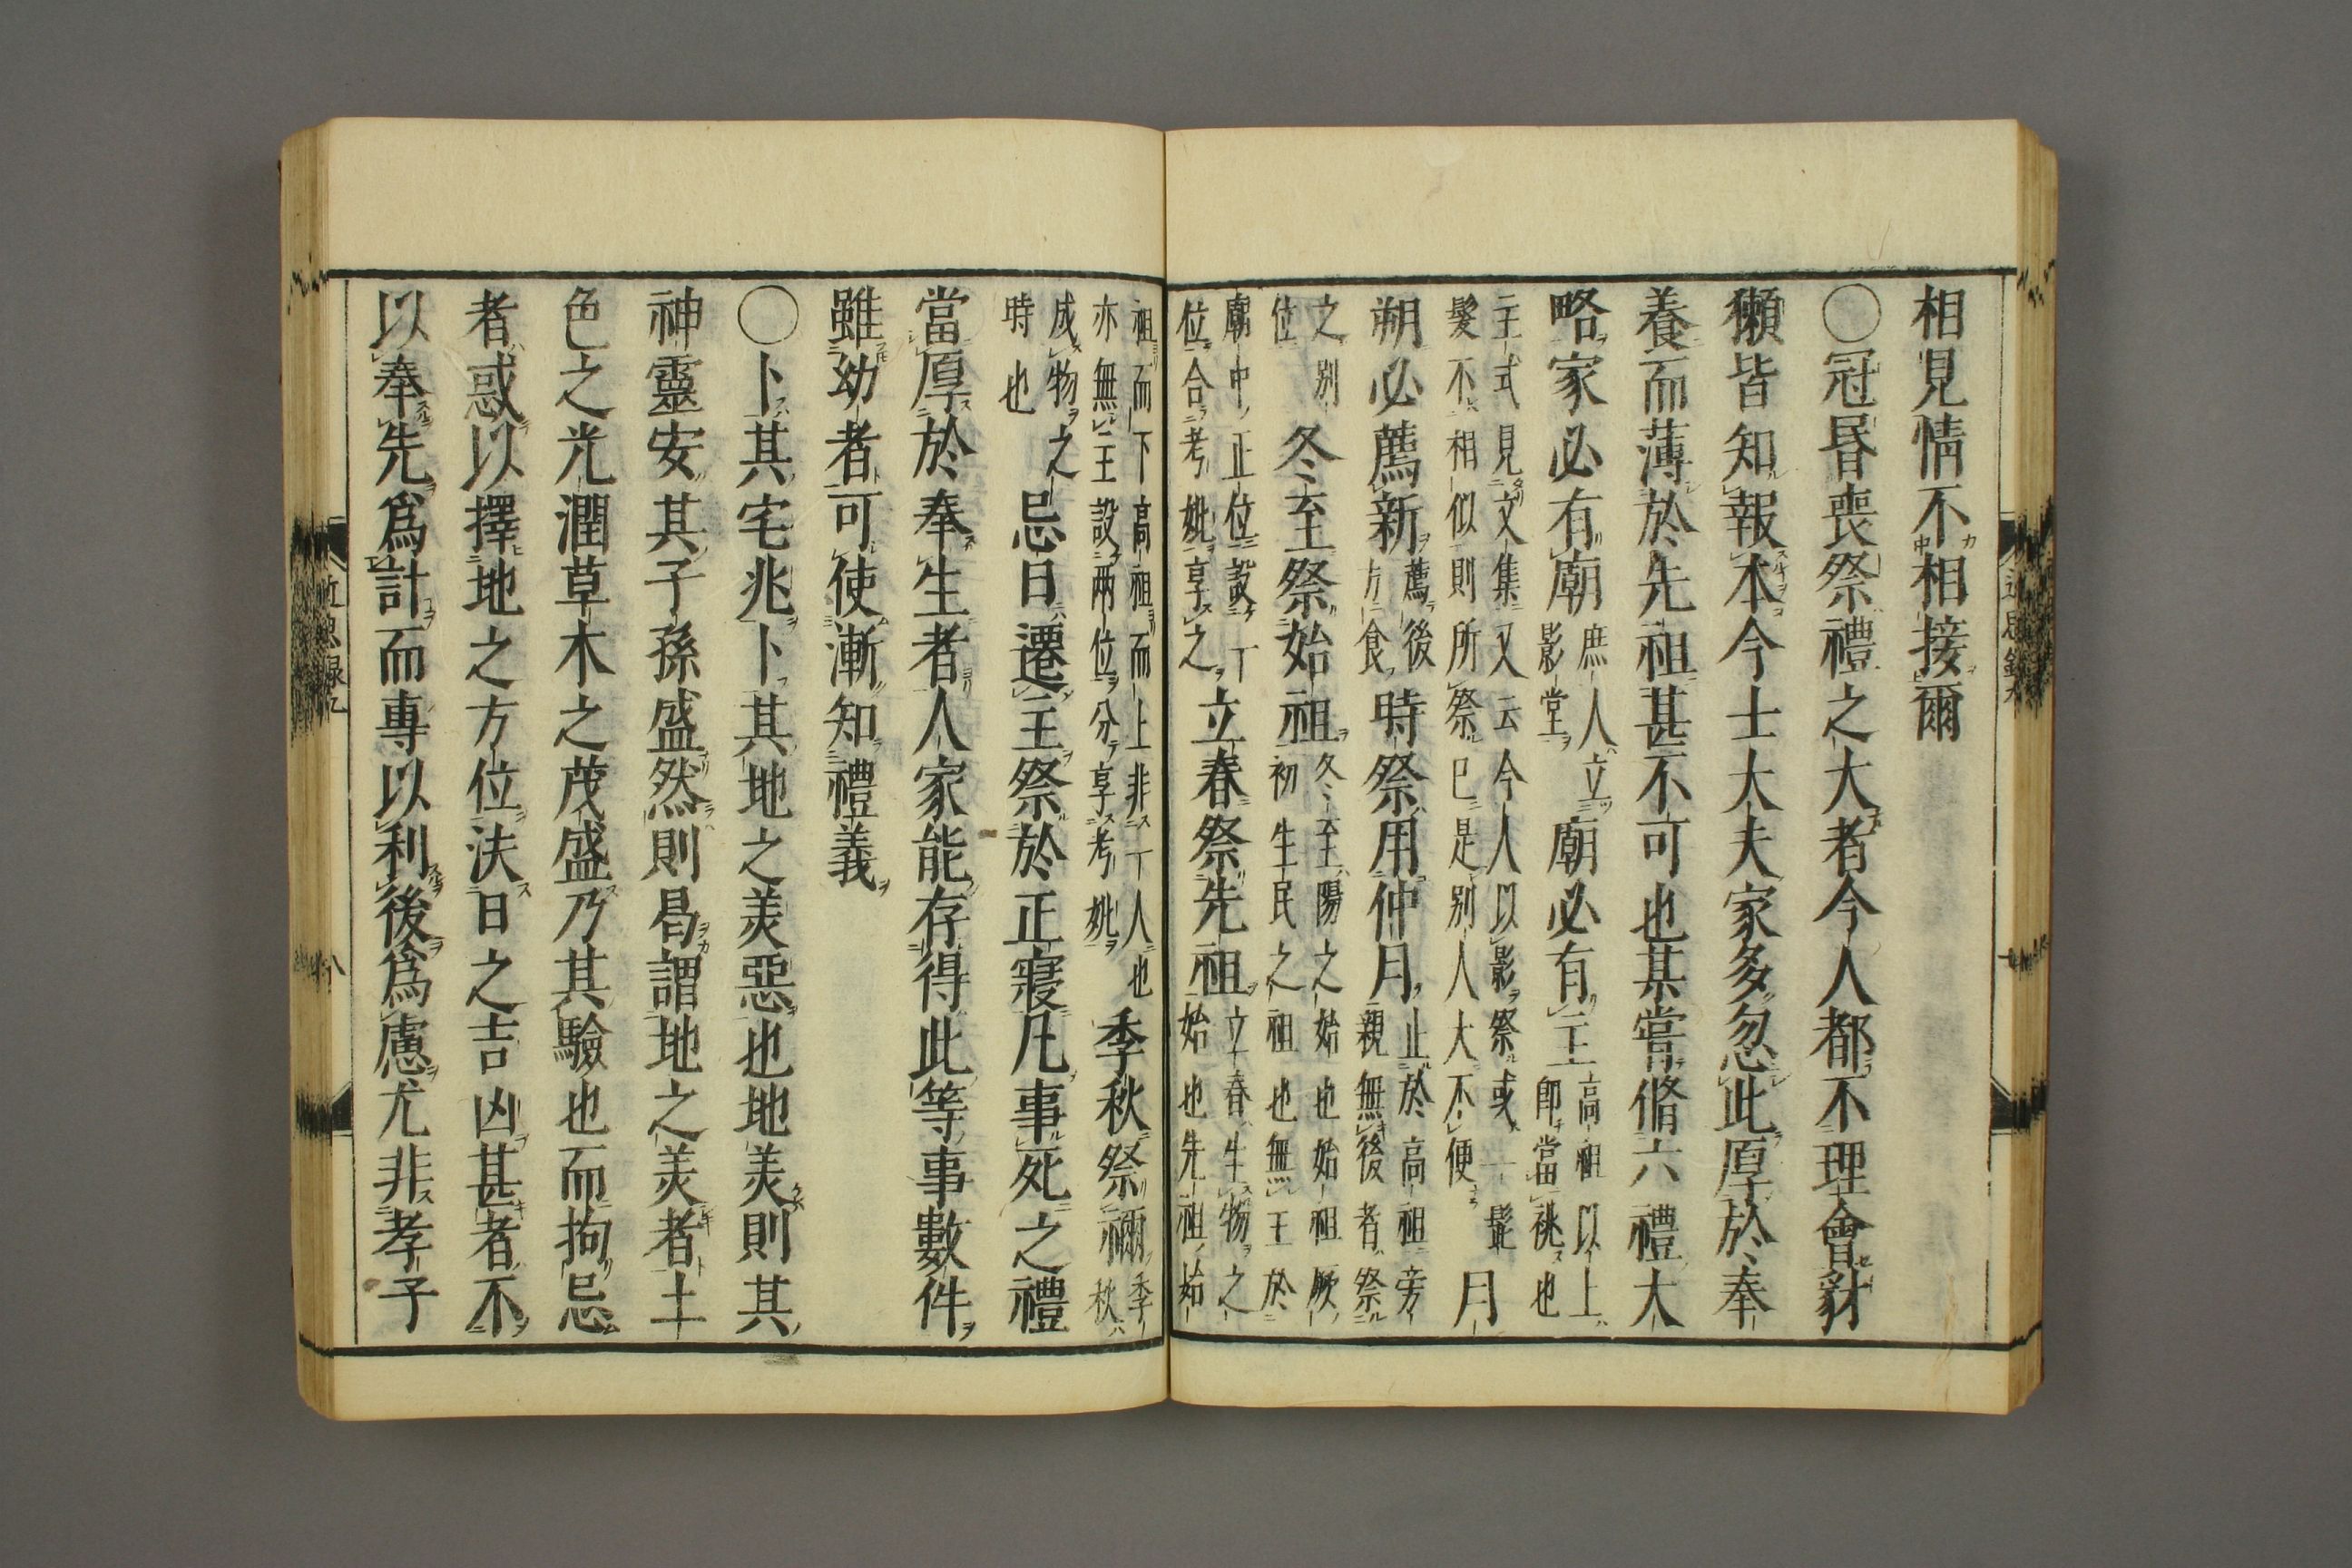 相見情不相接爾
○冠昏喪祭禮之大者今人都不理會豺
獺皆知報本今士大夫家多忽此厚於奉
養而薄於先祖甚不可也某嘗脩六禮大
略家必有廟庶人立影堂廟必有主高祖以上即當祧也
主式見文集又云今人以影祭或一髭髮不相似則所祭已是別人大不便月
朔必薦新薦後方食時祭用仲月止於高祖旁親無後者祭
之別位冬至祭始祖冬至陽之始也始祖厥初生民之祖也無主於
廟中正位設一位合考妣享之立春祭先祖立春生物之始也先祖始
祖而下高祖而上非一人也亦無主設兩位分享考妣季秋祭禰季秋
成物之時也忌日遷主祭於正寢凡事死之禮
當厚於奉生者人家能存得此等事數件
雖幼者可使漸知禮義
○卜其宅兆卜其地之美惡也地美則其
神靈安其子孫盛然則曷謂地之美者土
色之光潤草木之茂盛乃其驗也而拘忌
者惑以擇地之方位決日之吉凶甚者不
以奉先爲計而專以利後爲慮尤非孝子
近思録九 八